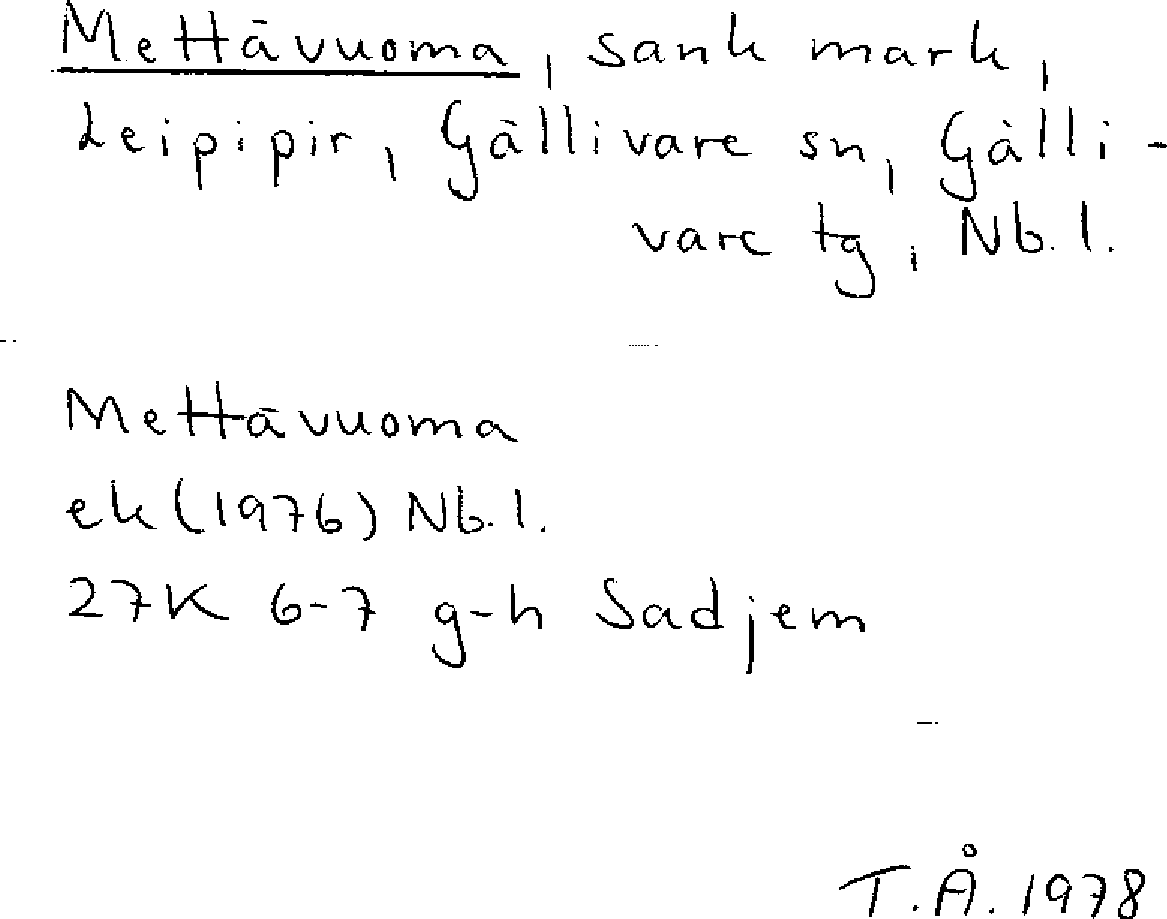 Mettävuoma, sank mark,
Leipipir, Gällivare sn, Gälli-
vare tg, Nb. l.
Mettävuoma
ek (1976) Nb. l.
27K 6-7 g-h Sadjem
T.Å. 1978